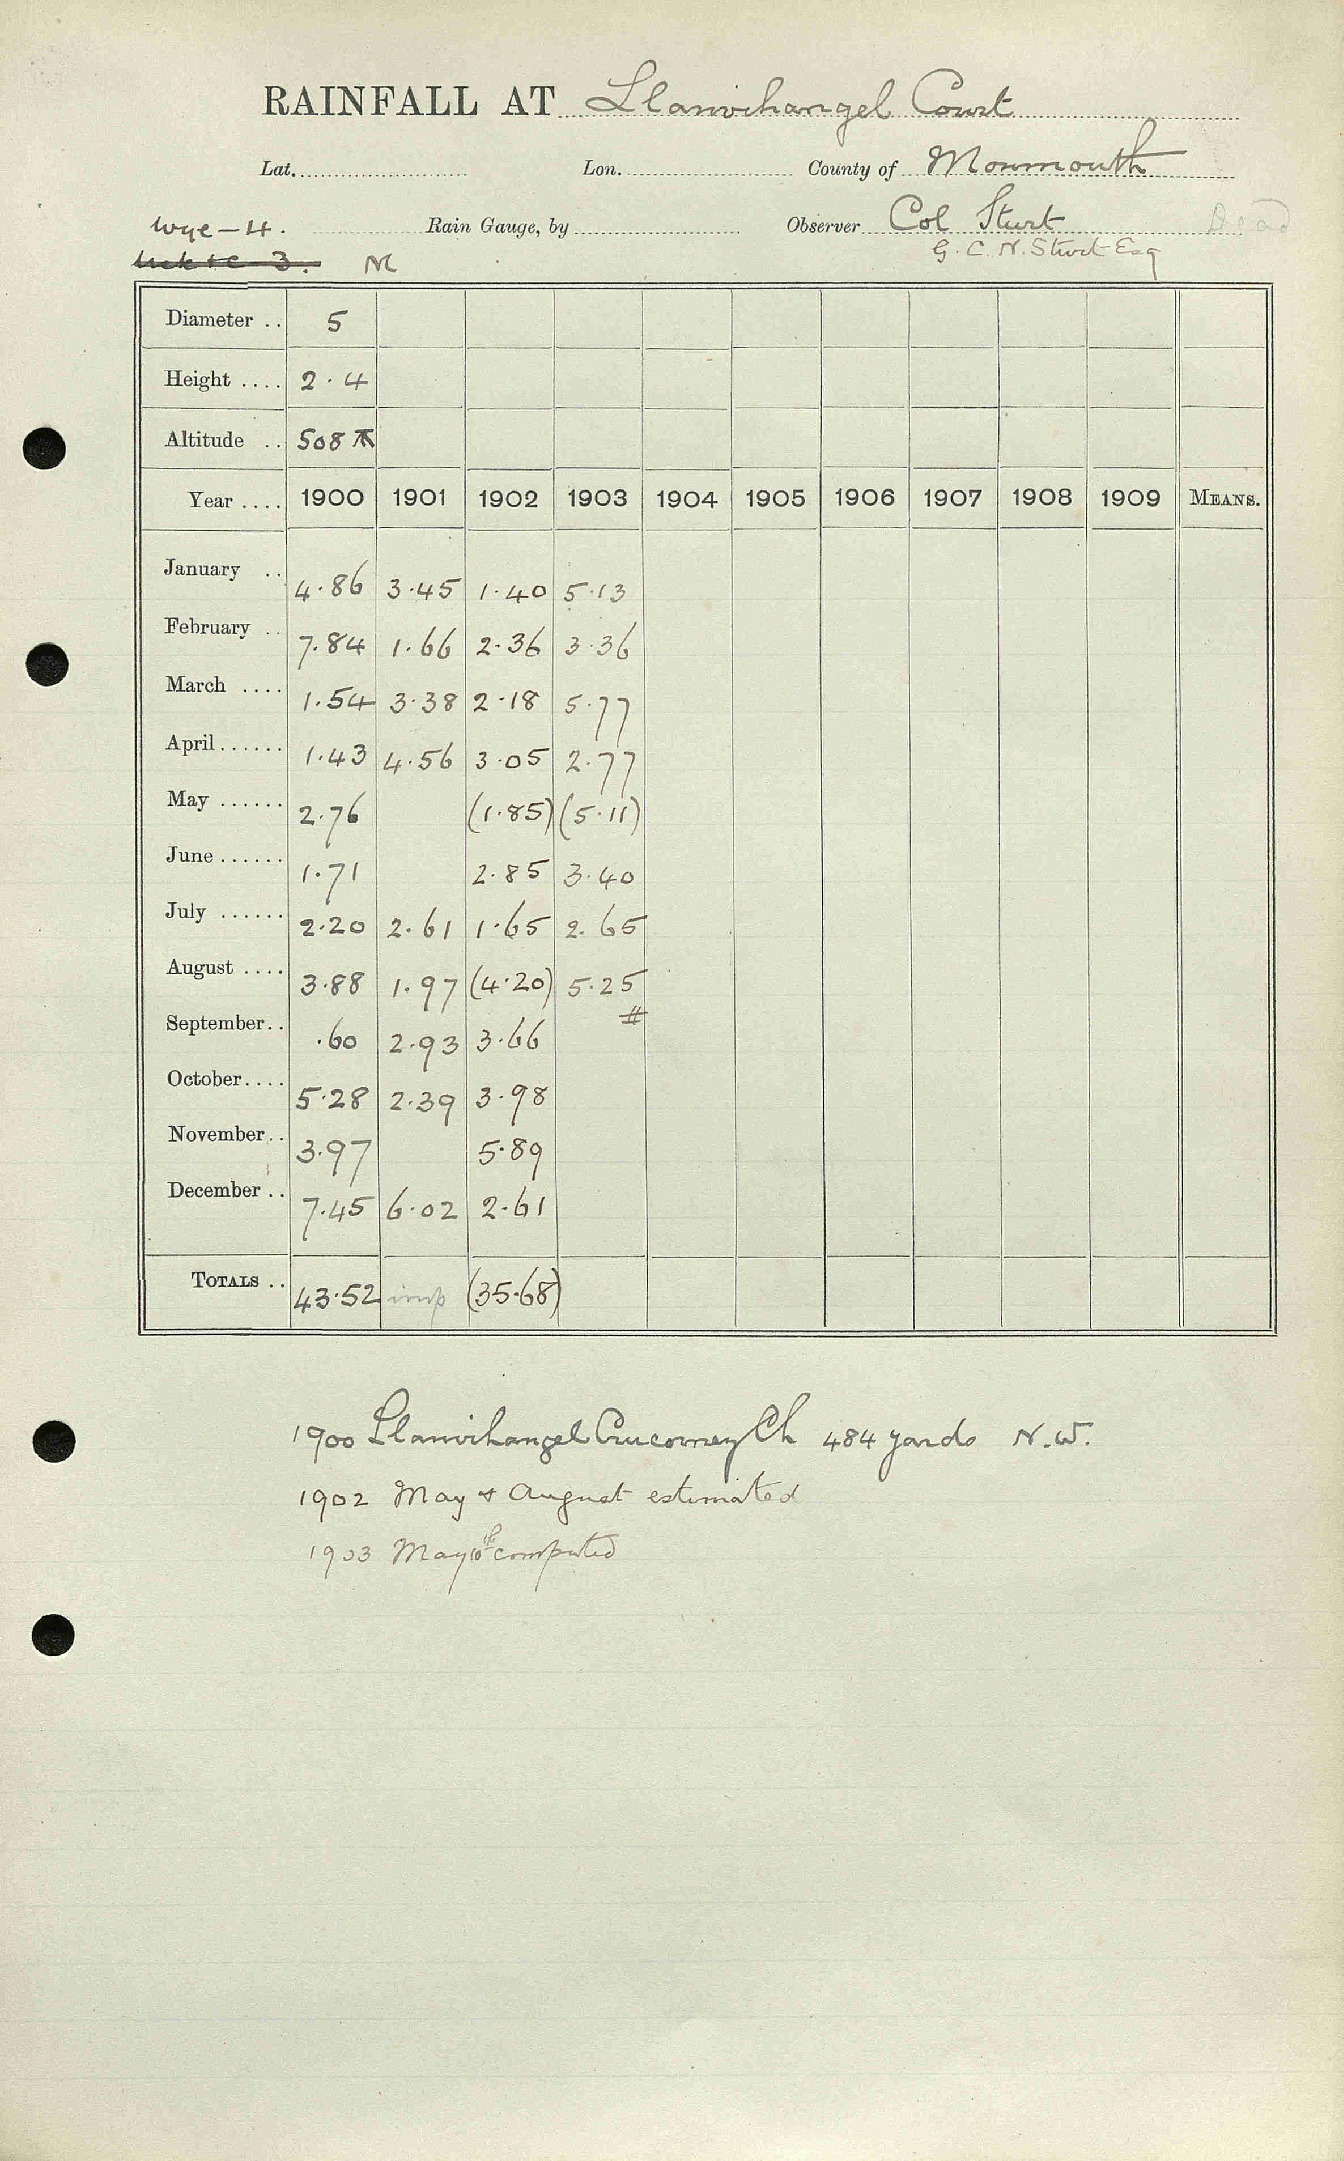 RAINFALL AT Llanvihangel Court
Lat. Lon. County of Monmouth
Wye - 4. Rain Gauge, by Observer Col Sturt Dead
3. N G. C. N. Sturt Esq
Diameter .. 5
Height .... 2.4
Altitude .. 508
Year .... 1900 1901 1902 1903 1904 1905 1906 1907 1908 1909 MEANS.
January .. 4.86 3.45 1.40 5.13
February .. 7.84 1.66 2.36 3.36
March .... 1.54 3.38 2.18 5.77
April ...... 1.43 4.56 3.05 2.77
May ...... 2.76 (1.85) (5.11)
June ...... 1.71 2.85 3.40
July ...... 2.20 2.61 1.65 2.65
August .... 3.88 1.97 (4.20) 5.25
#
September.. .60 2.93 3.66
October.... 5.28 2.39 3.98
November.. 3.97 5.89
December .. 7.45 6.02 2.61
TOTALS .. 43.52 imp (35.68)
1900 Llanvihangel Crucorney Ch 484 yards N.W.
1902 May & August estimated
1903 May computed